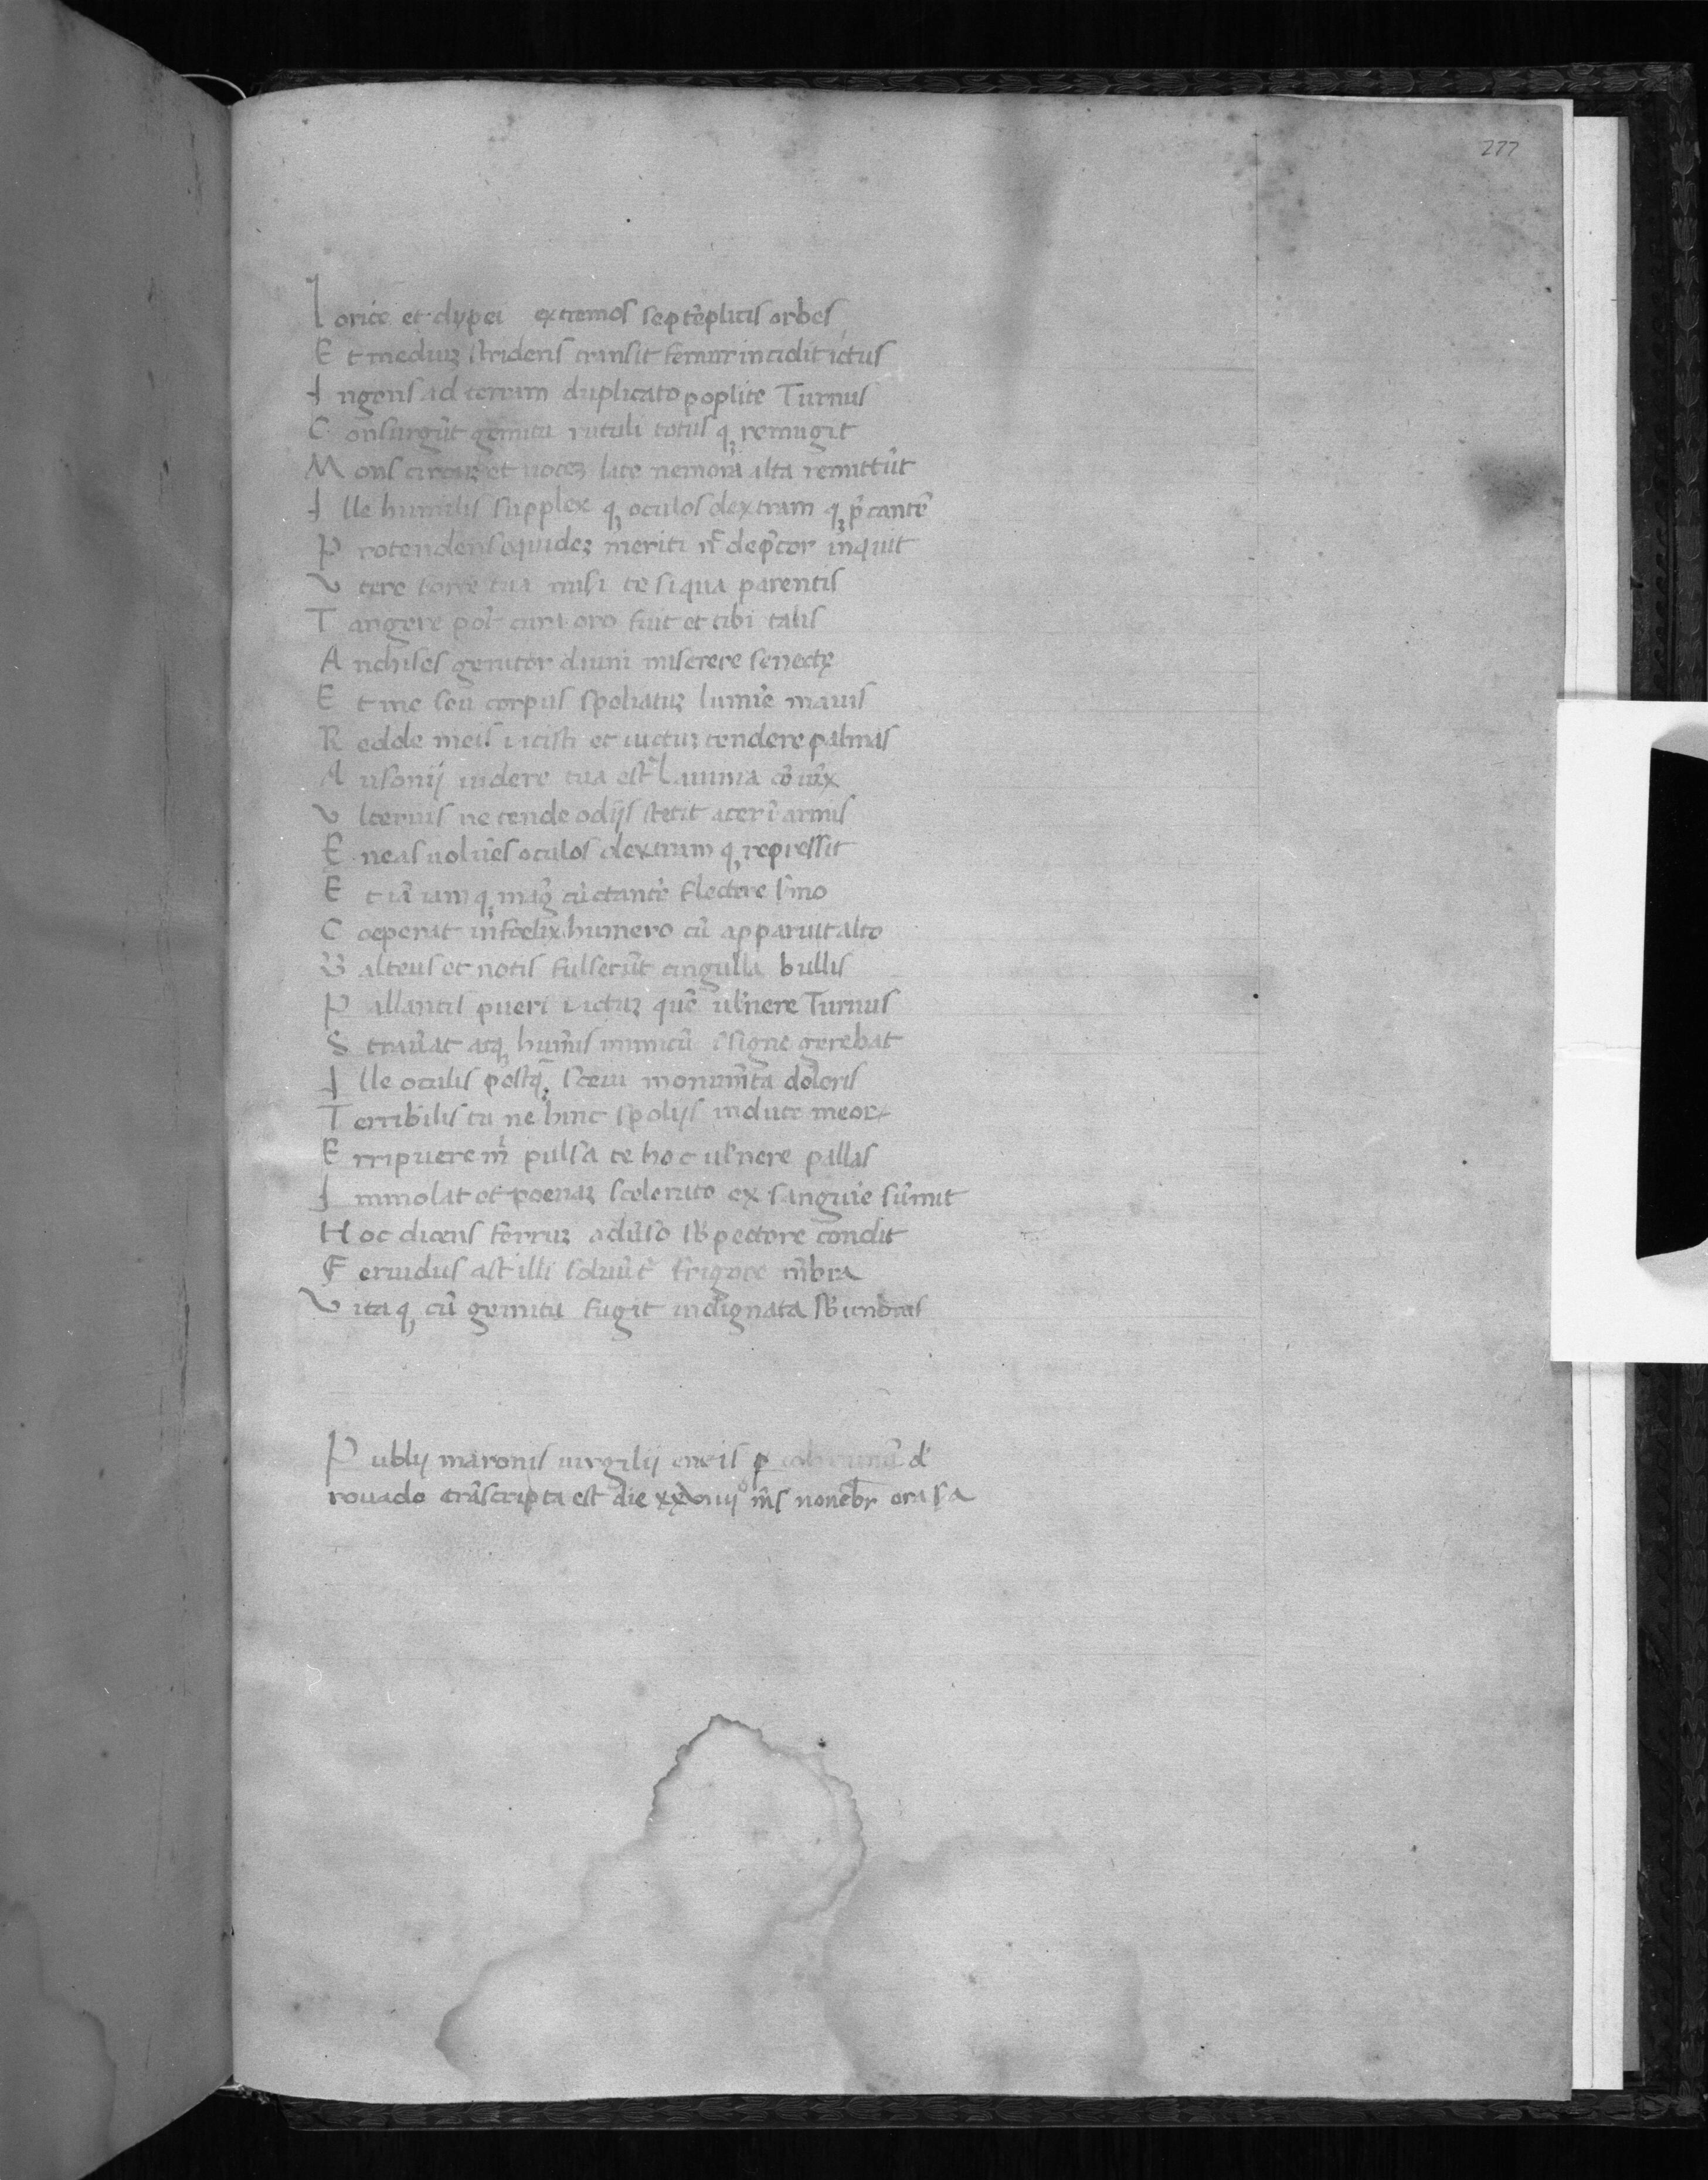 277
Lorice et clypei extremos septẽplicis orbes
Et mediuʒ stridens transit femur incidit ictus
Ingens ad terram duplicato poplite Turnus
Consurgũt gemitu rutuli totus qʒ remugit
Mons circuʒ et uoceʒ late nemora alta remittũt
Ille humilis supplex qʒ oculos dextram qʒ p̃cantẽ
Protendens equideʒ merui n̄ dep̃cor inquit
Vtere sorte tua misi te si qua parentis
Tangere pot̃ cura oro fuit et tibi talis
Anchises genitor dauni miserere senectę
Et me seu corpus spoliatuʒ lumĩe mauis
Redde meis uicisti et uictuʒ tendere palmas
Ausonij uidere tua est Lauinia cõiũx
Vlterius ne tende odijs stetit acer ĩ armis
Eneas uoluẽs oculos dextram qʒ repressit
Et iã iam qʒ mag̃ cũctantẽ flectere s̃mo
Coeperat infoelix humero cũ apparuit alto
Balteus et notis fulserũt cingulla bullis
Pallantis pueri uictuʒ quẽ uulnere Turnus
Strauẽat atqʒ hum̃is inimicũ ĩsigne gerebat
Ille oculis postqʒ̃ sceui monum̃ta doloris
Terribilis tu ne hinc spolijs indute meoꝝ
Erripuere m̃ pallas te hoc uulnere pallas
Immolat et poenaʒ scelerato ex sanguĩe sũmit
Hoc dicens ferruʒ aduẽso sb̃ pectore condit
Feruidus ast illi soluũt̃ frigore m̃bra
Vitaqʒ cũ gemitu fugit indignata sb̃ umbras
Publij maronis uirgilij eneis p d̃
rouado trãscripta est die xxviiijº m̃s nouẽbr